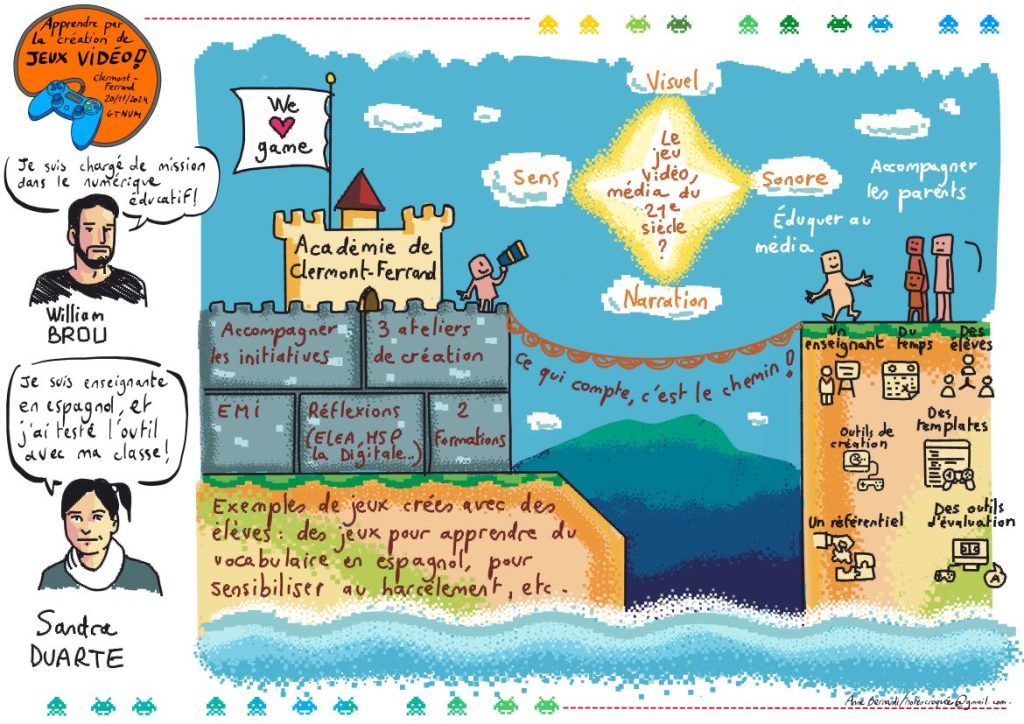 Apprendre par
la création de
JEUX VIDÉO !
Clermont-
Ferrand
20/11/2024
GTNUM
Je suis chargé de mission
dans le numérique
éducatif !
William
BROU
Je suis enseignante
en espagnol, et
j'ai testé l'outil
avec ma classe !
Sandra
DUARTE
We
game
Académie de
Clermont-Ferrand
Visuel
Sens
Sonore
Narration
Le
jeu
vidéo,
média du
21e
siècle
?
Accompagner
les parents
Éduquer au
média
Accompagner
les initiatives
3 ateliers
de création
EMi
Réflexions
(ELEA, HSP
la Digitale...)
2
Formations
Ce qui compte, c'est le chemin !
Exemples de jeux crées avec des
élèves : des jeux pour apprendre du
vocabulaire en espagnol, pour
sensibiliser au harcèlement, etc.
Un
enseignant
Du
temps
Des
élèves
Outils de
création
Des
templates
Un référentiel
Des outils
d'évaluation
A